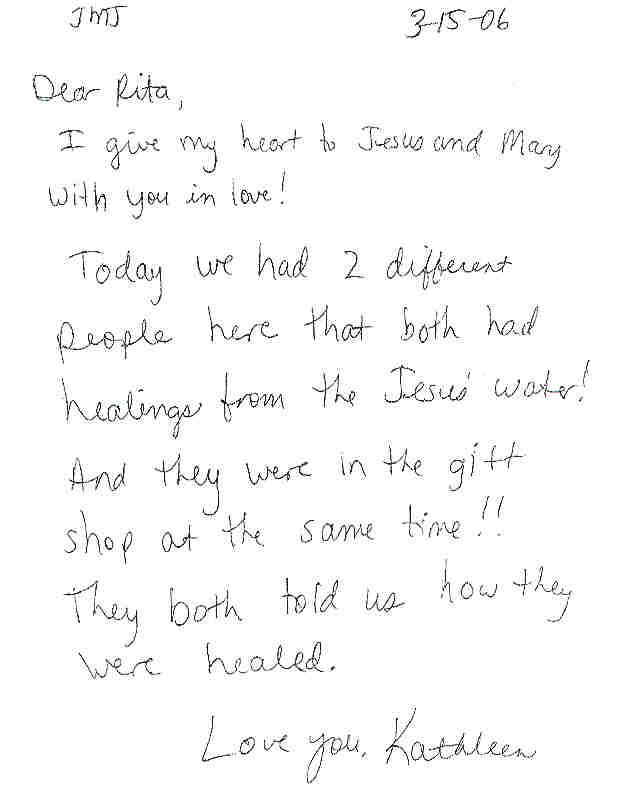 JMJ 3-15-06
Dear Rita,
I give my heart to Jesus and Mary
with you in love!
Today we had 2 different
people here that both had
healings from the Jesus' water!
And they were in the gift
shop at the same time!!
They both told us how they
were healed.
Love you, Kathleen